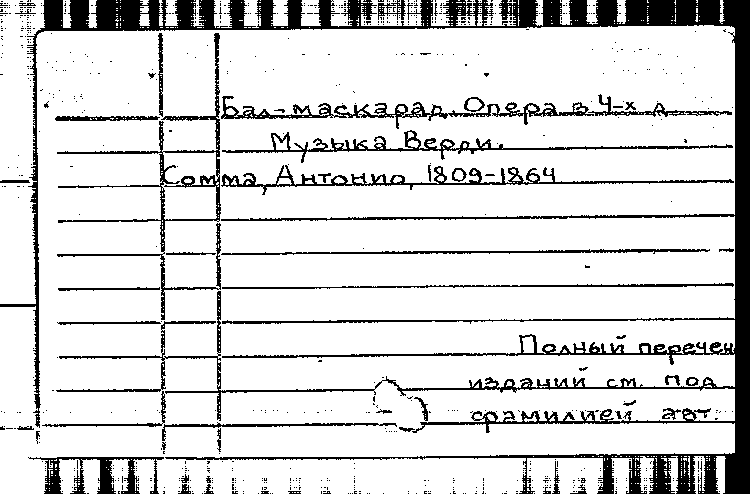 Бал-маскарад. Опера в 4-х д.
Музыка Верди.
Сомма, Антонио, 1809-1864
Полный перечен
изданий см. под
фамилией авт.